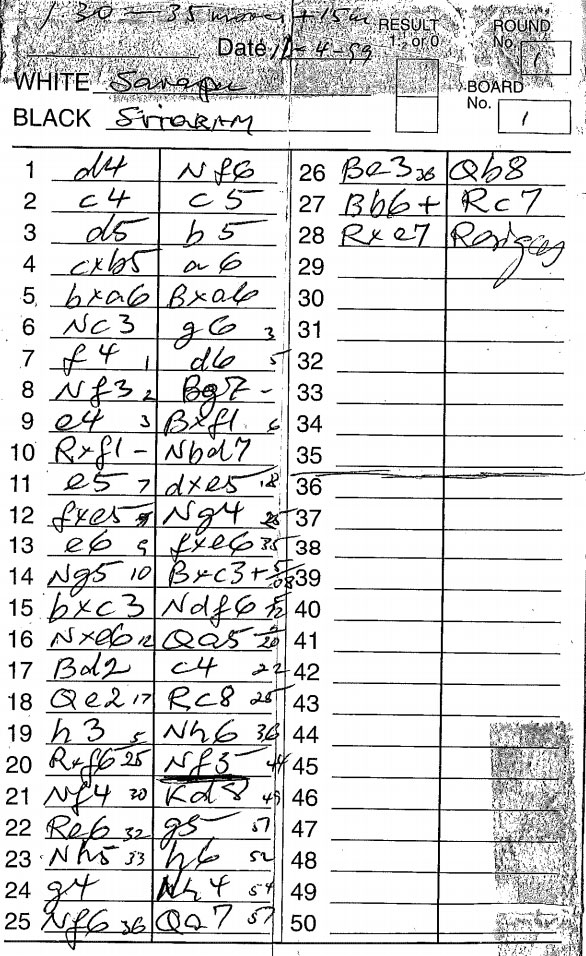 1 30 - 35 moves + 15m
RESULT ROUND
1, ½ or 0 No. 1
Date 12-4-99
WHITE Sarapu BOARD
No. 1
BLACK Sriram
1 d4 Nf6 26 Be3 36 Qb8
2 c4 c5 27 Bb6+ Rc7
3 d5 b5 28 Rxe7 Resigns
4 cxb5 a6 29
5 bxa6 Bxa6 30
6 Nc3 g6 3 31
7 f4 1 d6 5 32
8 Nf3 2 Bg7 - 33
9 e4 3 Bxf1 6 34
10 Rxf1 - Nbd7 35
11 e5 7 dxe5 18 36
12 fxe5 Ng4 25 37
13 e6 9 fxe6 35 38
14 Ng5 10 Bxc3+ 39
15 bxc3 Ndf6 40
16 Nxe6 12 Qa5 41
17 Bd2 c4 22 42
18 Qe2 17 Rc8 25 43
19 h3 5 Nh6 36 44
20 Rxf6 25 Nf5 44 45
21 Nf4 30 Kd8 49 46
22 Re6 32 g5 51 47
23 Nh5 33 h6 52 48
24 g4 Nh4 54 49
25 Nf6 36 Qa7 57 50